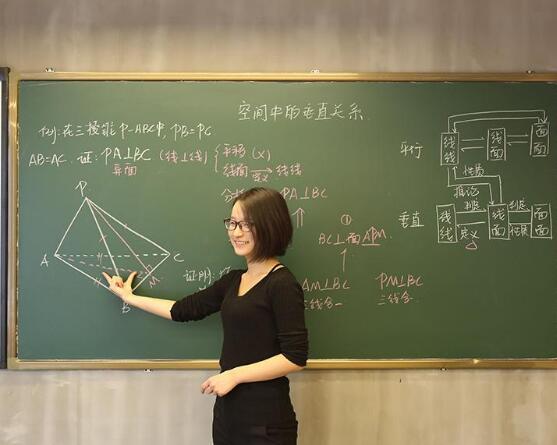 空间中的垂直关系
例:在三棱锥 P-ABC中, PB=PC
AB=AC. 证:PA⊥BC (线⊥线)
异面
平移 (X)
线面 定义 线线
PA⊥BC
P
A
B
C
M
①
BC⊥面APM
证明:
AM⊥BC
PM⊥BC
三线合一
三线合
平行
线线
线面
面面
性质
推论
垂直
线线
判定
定义
线面
判定
性质
面面